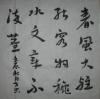 春風大雅
能容物秋
水文章不
染塵